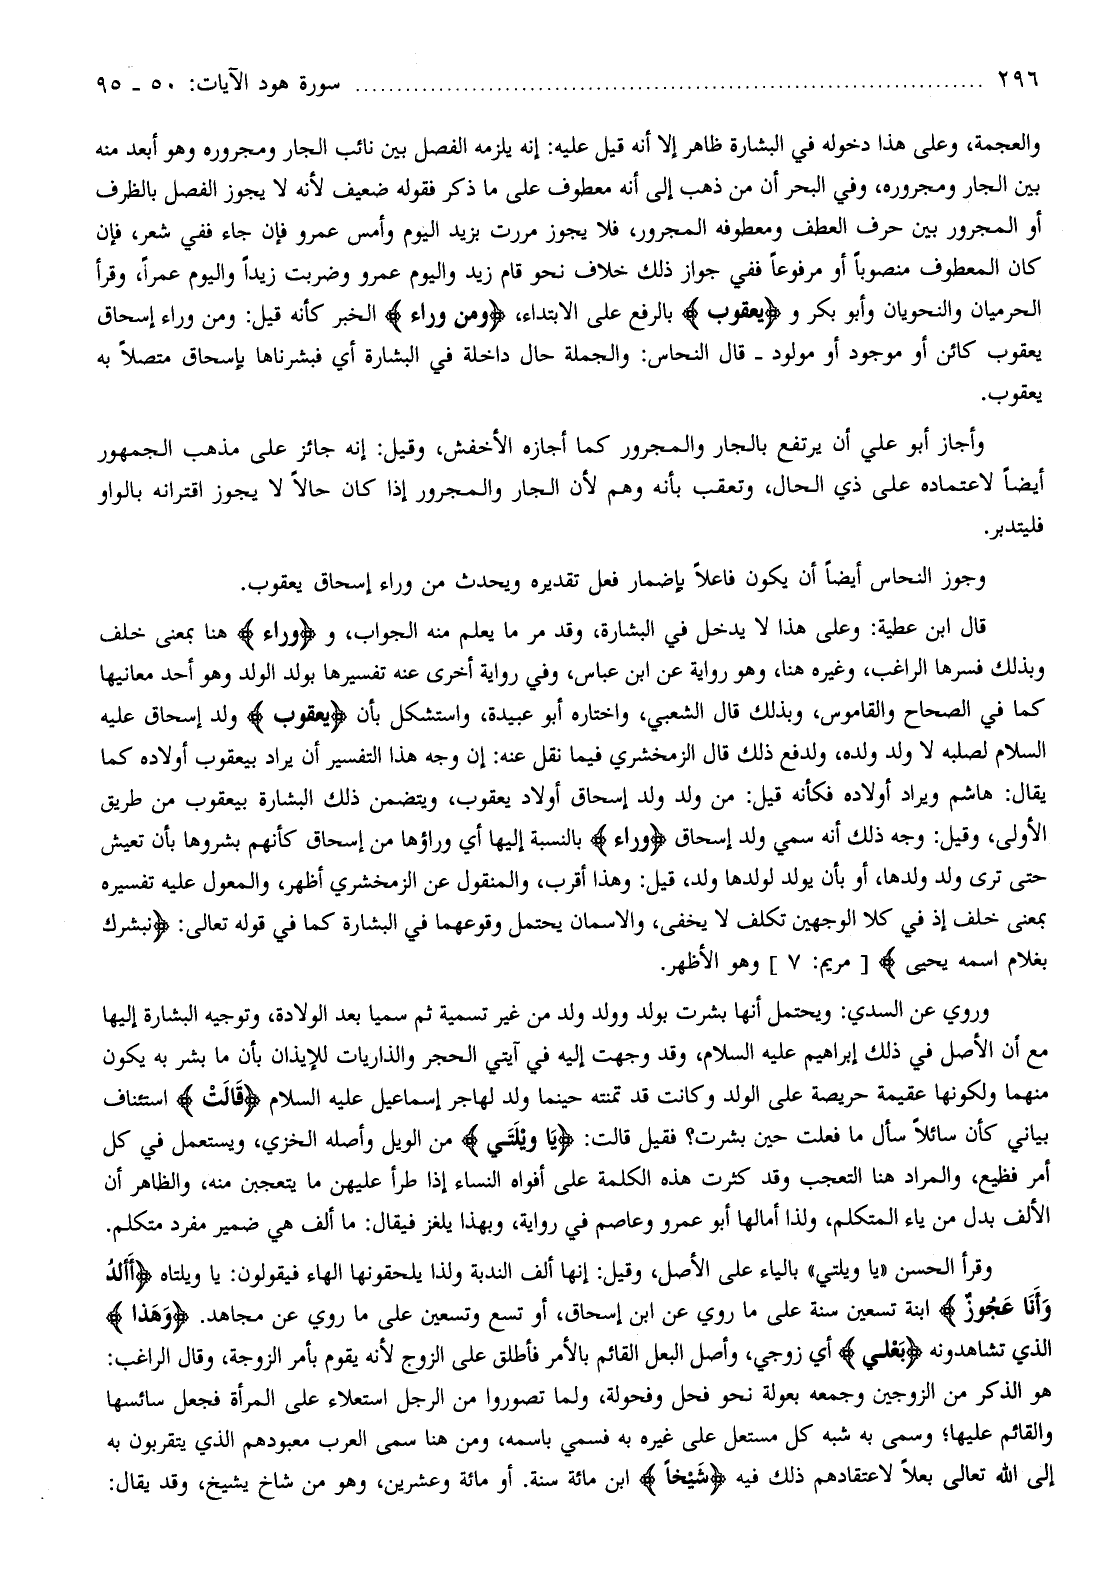 ٢٩٦ ........................................................................ سورة هود الآيات: ٥٠ ـ ٩٥
والعجمة، وعلى هذا دخوله في البشارة ظاهر إلا أنه قيل عليه: إنه يلزمه الفصل بين نائب الجار ومجروره وهو أبعد منه
بين الجار ومجروره، وفي البحر أن من ذهب إلى أنه معطوف على ما ذكر فقوله ضعيف لأنه لا يجوز الفصل بالظرف
أو المجرور بين حرف العطف ومعطوفه المجرور، فلا يجوز مررت بزيد اليوم وأمس عمرو فإن جاء ففي شعر، فإن
كان المعطوف منصوباً أو مرفوعاً ففي جواز ذلك خلاف نحو قام زيد واليوم عمرو وضربت زيداً واليوم عمراً، وقرأ
الحرميان والنحويان وأبو بكر و ﴿يعقوب﴾ بالرفع على الابتداء، ﴿ومن وراء﴾ الخبر كأنه قيل: ومن وراء إسحاق
يعقوب كائن أو موجود أو مولود ـ قال النحاس: والجملة حال داخلة في البشارة أي فبشرناها بإسحاق متصلاً به
يعقوب.
وأجاز أبو علي أن يرتفع بالجار والمجرور كما أجازه الأخفش، وقيل: إنه جائز على مذهب الجمهور
أيضاً لاعتماده على ذي الحال، وتعقب بأنه وهم لأن الجار والمجرور إذا كان حالاً لا يجوز اقترانه بالواو
فليتدبر.
وجوز النحاس أيضاً أن يكون فاعلاً بإضمار فعل تقديره ويحدث من وراء إسحاق يعقوب.
قال ابن عطية: وعلى هذا لا يدخل في البشارة، وقد مر ما يعلم منه الجواب، و ﴿وراء﴾ هنا بمعنى خلف
وبذلك فسرها الراغب، وغيره هنا، وهو رواية عن ابن عباس، وفي رواية أخرى عنه تفسيرها بولد الولد وهو أحد معانيها
كما في الصحاح والقاموس، وبذلك قال الشعبي، واختاره أبو عبيدة، واستشكل بأن ﴿يعقوب﴾ ولد إسحاق عليه
السلام لصلبه لا ولد ولده، ولدفع ذلك قال الزمخشري فيما نقل عنه: إن وجه هذا التفسير أن يراد بيعقوب أولاده كما
يقال: هاشم ويراد أولاده فكأنه قيل: من ولد ولد إسحاق أولاد يعقوب، ويتضمن ذلك البشارة بيعقوب من طريق
الأولى، وقيل: وجه ذلك أنه سمي ولد إسحاق ﴿وراء﴾ بالنسبة إليها أي وراؤها من إسحاق كأنهم بشروها بأن تعيش
حتى ترى ولد ولدها، أو بأن يولد لولدها ولد، قيل: وهذا أقرب، والمنقول عن الزمخشري أظهر، والمعول عليه تفسيره
بمعنى خلف إذ في كلا الوجهين تكلف لا يخفى، والاسمان يحتمل وقوعهما في البشارة كما في قوله تعالى: ﴿نبشرك
بغلام اسمه يحيى﴾ [ مريم: ٧ ] وهو الأظهر.
وروي عن السدي: ويحتمل أنها بشرت بولد وولد ولد من غير تسمية ثم سميا بعد الولادة، وتوجيه البشارة إليها
مع أن الأصل في ذلك إبراهيم عليه السلام، وقد وجهت إليه في آيتي الحجر والذاريات للإيذان بأن ما بشر به يكون
منهما ولكونها عقيمة حريصة على الولد وكانت قد تمنته حينما ولد لهاجر إسماعيل عليه السلام ﴿قَالَتْ﴾ استئناف
بياني كأن سائلاً سأل ما فعلت حين بشرت؟ فقيل قالت: ﴿يَا ويْلَتَـي﴾ من الويل وأصله الخزي، ويستعمل في كل
أمر فظيع، والمراد هنا التعجب وقد كثرت هذه الكلمة على أفواه النساء إذا طرأ عليهن ما يتعجبن منه، والظاهر أن
الألف بدل من ياء المتكلم، ولذا أمالها أبو عمرو وعاصم في رواية، وبهذا يلغز فيقال: ما ألف هي ضمير مفرد متكلم.
وقرأ الحسن «يا ويلتي» بالياء على الأصل، وقيل: إنها ألف الندبة ولذا يلحقونها الهاء فيقولون: يا ويلتاه ﴿أَأَلدُ
وَأَنَا عَجُوزٌ﴾ ابنة تسعين سنة على ما روي عن ابن إسحاق، أو تسع وتسعين على ما روي عن مجاهد. ﴿وَهَذا﴾
الذي تشاهدونه ﴿بَعْلـي﴾ أي زوجي، وأصل البعل القائم بالأمر فأطلق على الزوج لأنه يقوم بأمر الزوجة، وقال الراغب:
هو الذكر من الزوجين وجمعه بعولة نحو فحل وفحولة، ولما تصوروا من الرجل استعلاء على المرأة فجعل سائسها
والقائم عليها؛ وسمى به شبه كل مستعل على غيره به فسمي باسمه، ومن هنا سمى العرب معبودهم الذي يتقربون به
إلى الله تعالى بعلاً لاعتقادهم ذلك فيه ﴿شَيْخاً﴾ ابن مائة سنة. أو مائة وعشرين، وهو من شاخ يشيخ، وقد يقال: